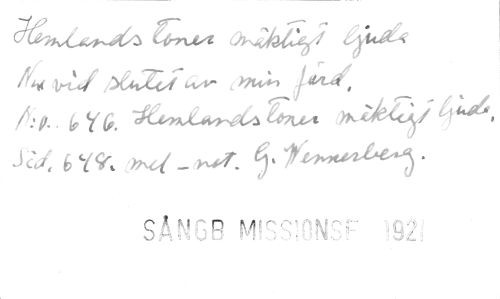 Hemlandstoner mäktigt ljuda
Nu vid slutet av min färd.
N:o. 646. Hemlandstoner mäktigt ljuda.
Sid. 648. mel-not. G. Wennerberg.
SÅNGB MISSIONSF 1921